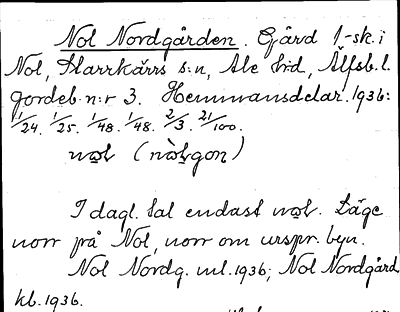 Nol Nordgården. Gård 1-sk. i
Nol, Starrkärrs s:n, Ale hd, Älfsb. l.
Jordeb. n:r 3. Hemmansdelar. 1936:
1/24. 1/25. 1/48. 1/48. 2/3. 21/100.
nol (nòlgon)
I dagl. tal endast nol. Läge
norr på Nol, norr om urspr. byn.
Nol Nordg. ml. 1936; Nol Nordgård
kb. 1936.